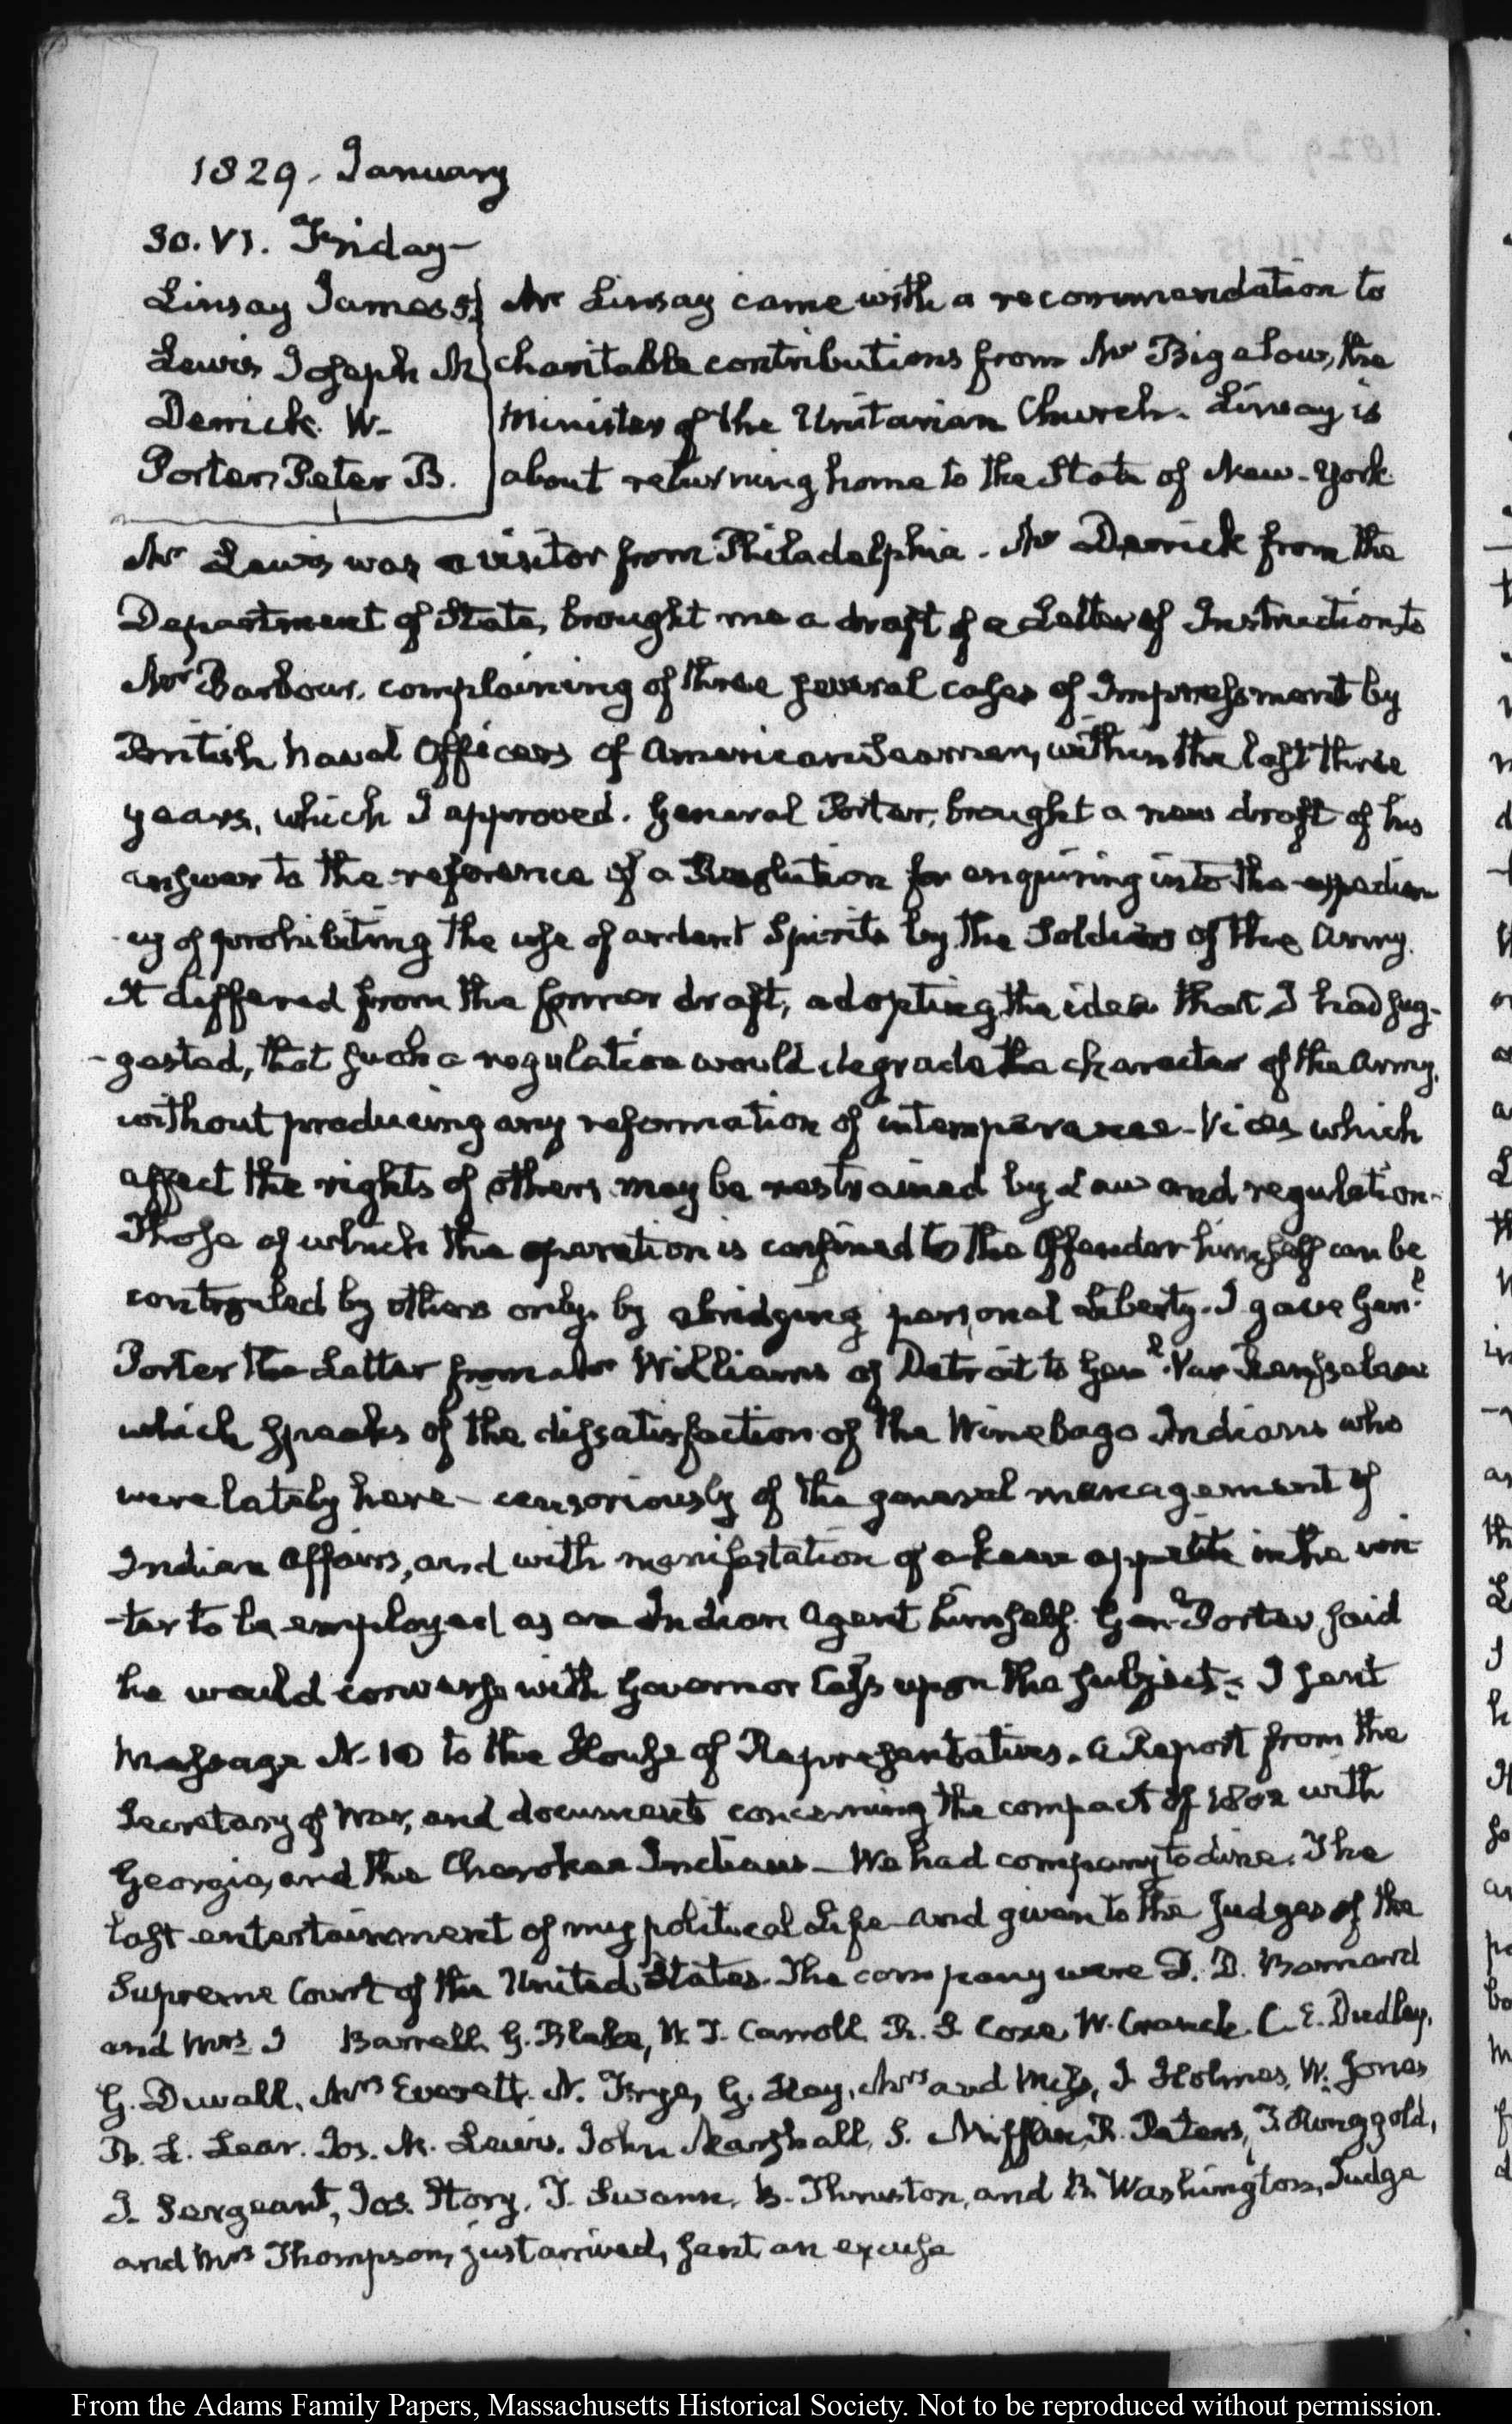 1829. January
30. VI. Friday—
Linsay James S. Mr Linsay came with a recommendation to
Lewis Joseph M charitable contributions from Mr Bigelow, the
Derrick. W— Minister of the Unitarian Church. Linsay is
Porter, Peter B. about returning home to the State of New-York
Mr Lewis was a visitor from Philadelphia. Mr Derrick from the
Department of State, brought me a draft of a Letter of Instructions to
Mr Barbour, complaining of three several cases of Impressment by
British Naval Officers of American Seamen, within the last three
years, which I approved. General Porter, brought a new draft of his
answer to the reference of a Resolution for enquiring into the expedien
-cy of prohibiting the use of ardent Spirits by the Soldiers of the Army.
It differed from the former draft, adopting the idea that I had sug-
-gested, that such a regulation would degrade the character of the Army,
without producing any reformation of intemperance— Vices which
affect the rights of others may be restrained by Law and regulation—
Those of which the operation is confined to the Offender himself can be
controuled by others only by abridging personal Liberty. I gave Genl
Porter the Letter from Mr Williams of Detroit to Genl Van Rensselaer
which speaks of the dissatisfaction of the Winebago Indians who
were lately here— censoriously of the general management of
Indian Affairs, and with manifestation of a keen appetite in the wri
-ter to be employed as an Indian Agent himself. Genl Porter said
he would converse with Governor Cass upon the subject— I sent
Message N. 10 to the House of Representatives. A Report from the
Secretary of War, and documents concerning the compact of 1802 with
Georgia, and the Cherokee Indians— We had company to dine. The
last entertainment of my political Life— and given to the Judges of the
Supreme Court of the United States. The company were D. D. Barnard
and Mrs I Barrell. G. Blake, W. T. Carroll R. S. Coxe, W. Cranch. C. E. Dudley,
G. Duvall, Mrs Everett. N. Frye, G. Hay, Mrs and Miss, J. Holmes, W. Jones
B. L. Lear. Jos. M. Lewis. John Marshall, S. Mifflin, R. Peters, T. Ringgold,
J. Sergeant, Jos. Story, T. Swann, B. Thruston, and B. Washington, Judge
and Mrs Thompson, just arrived, sent an excuse
From the Adams Family Papers, Massachusetts Historical Society. Not to be reproduced without permission.